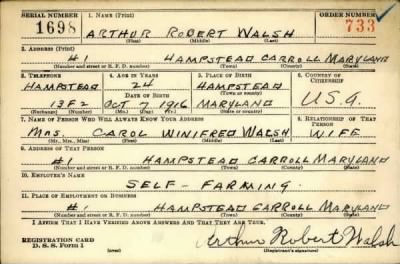 SERIAL NUMBER 1. NAME (Print) ORDER NUMBER
1698 ARTHUR ROBERT WALSH 733
(First) (Middle) (Last)
2. ADDRESS (Print)
#1 HAMPSTEAD CARROLL MARYLAND
(Number and street or R. F. D. number) (Town) (County) (State)
3. TELEPHONE 4. AGE IN YEARS 5. PLACE OF BIRTH 6. COUNTRY OF CITIZENSHIP
HAMPSTEAD 24 HAMPSTEAD
DATE OF BIRTH (Town or county)
13F2 OCT 7 1916 MARYLAND U.S.A.
(Exchange) (Number) (Mo.) (Day) (Yr.) (State or country)
7. NAME OF PERSON WHO WILL ALWAYS KNOW YOUR ADDRESS 8. RELATIONSHIP OF THAT PERSON
MRS. CAROL WINIFRED WALSH WIFE
(Mr., Mrs., Miss) (First) (Middle) (Last)
9. ADDRESS OF THAT PERSON
#1 HAMPSTEAD CARROLL MARYLAND
(Number and street or R. F. D. number) (Town) (County) (State)
10. EMPLOYER'S NAME
SELF - FARMING.
11. PLACE OF EMPLOYMENT OR BUSINESS
#1 HAMPSTEAD CARROLL MARYLAND
(Number and street or R. F. D. number) (Town) (County) (State)
I AFFIRM THAT I HAVE VERIFIED ABOVE ANSWERS AND THAT THEY ARE TRUE.
REGISTRATION CARD
D. S. S. Form 1 Arthur Robert Walsh
(over) (Registrant's signature)